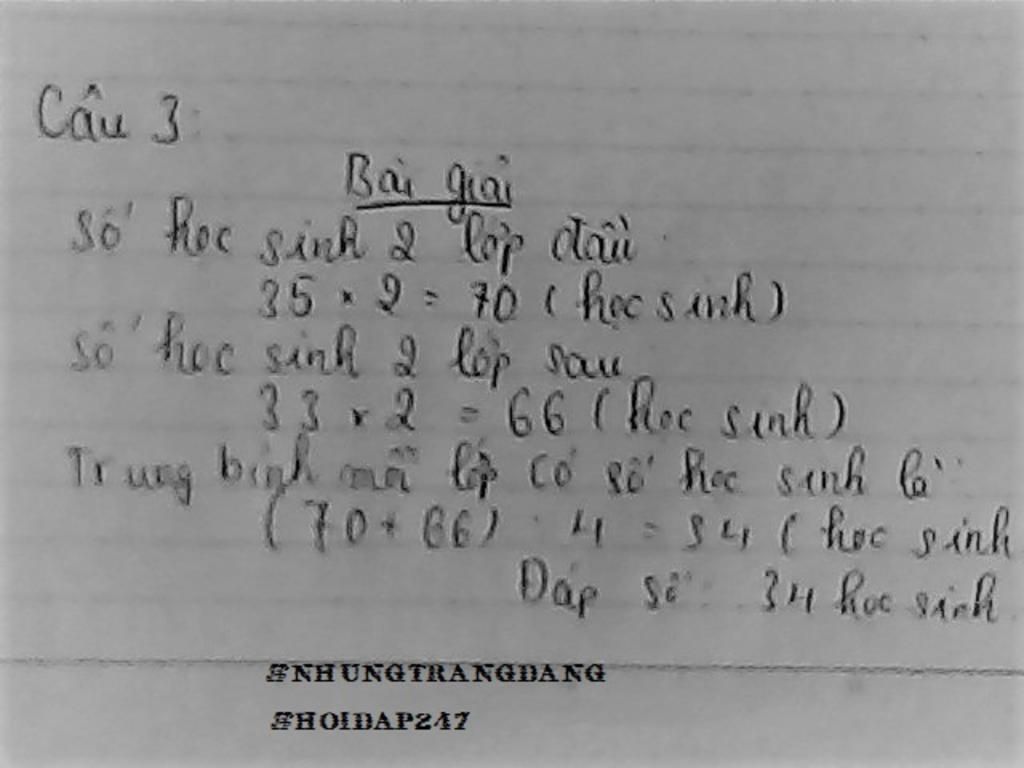 Câu 3:
Bài giải
Số học sinh 2 lớp đầu
35 × 2 = 70 (học sinh)
Số học sinh 2 lớp sau
33 × 2 = 66 (học sinh)
Trung bình mỗi lớp có số học sinh là:
(70 + 66) : 4 = 34 (học sinh
Đáp số: 34 học sinh
#NHUNGTRANGDANG
#HOIDAP247